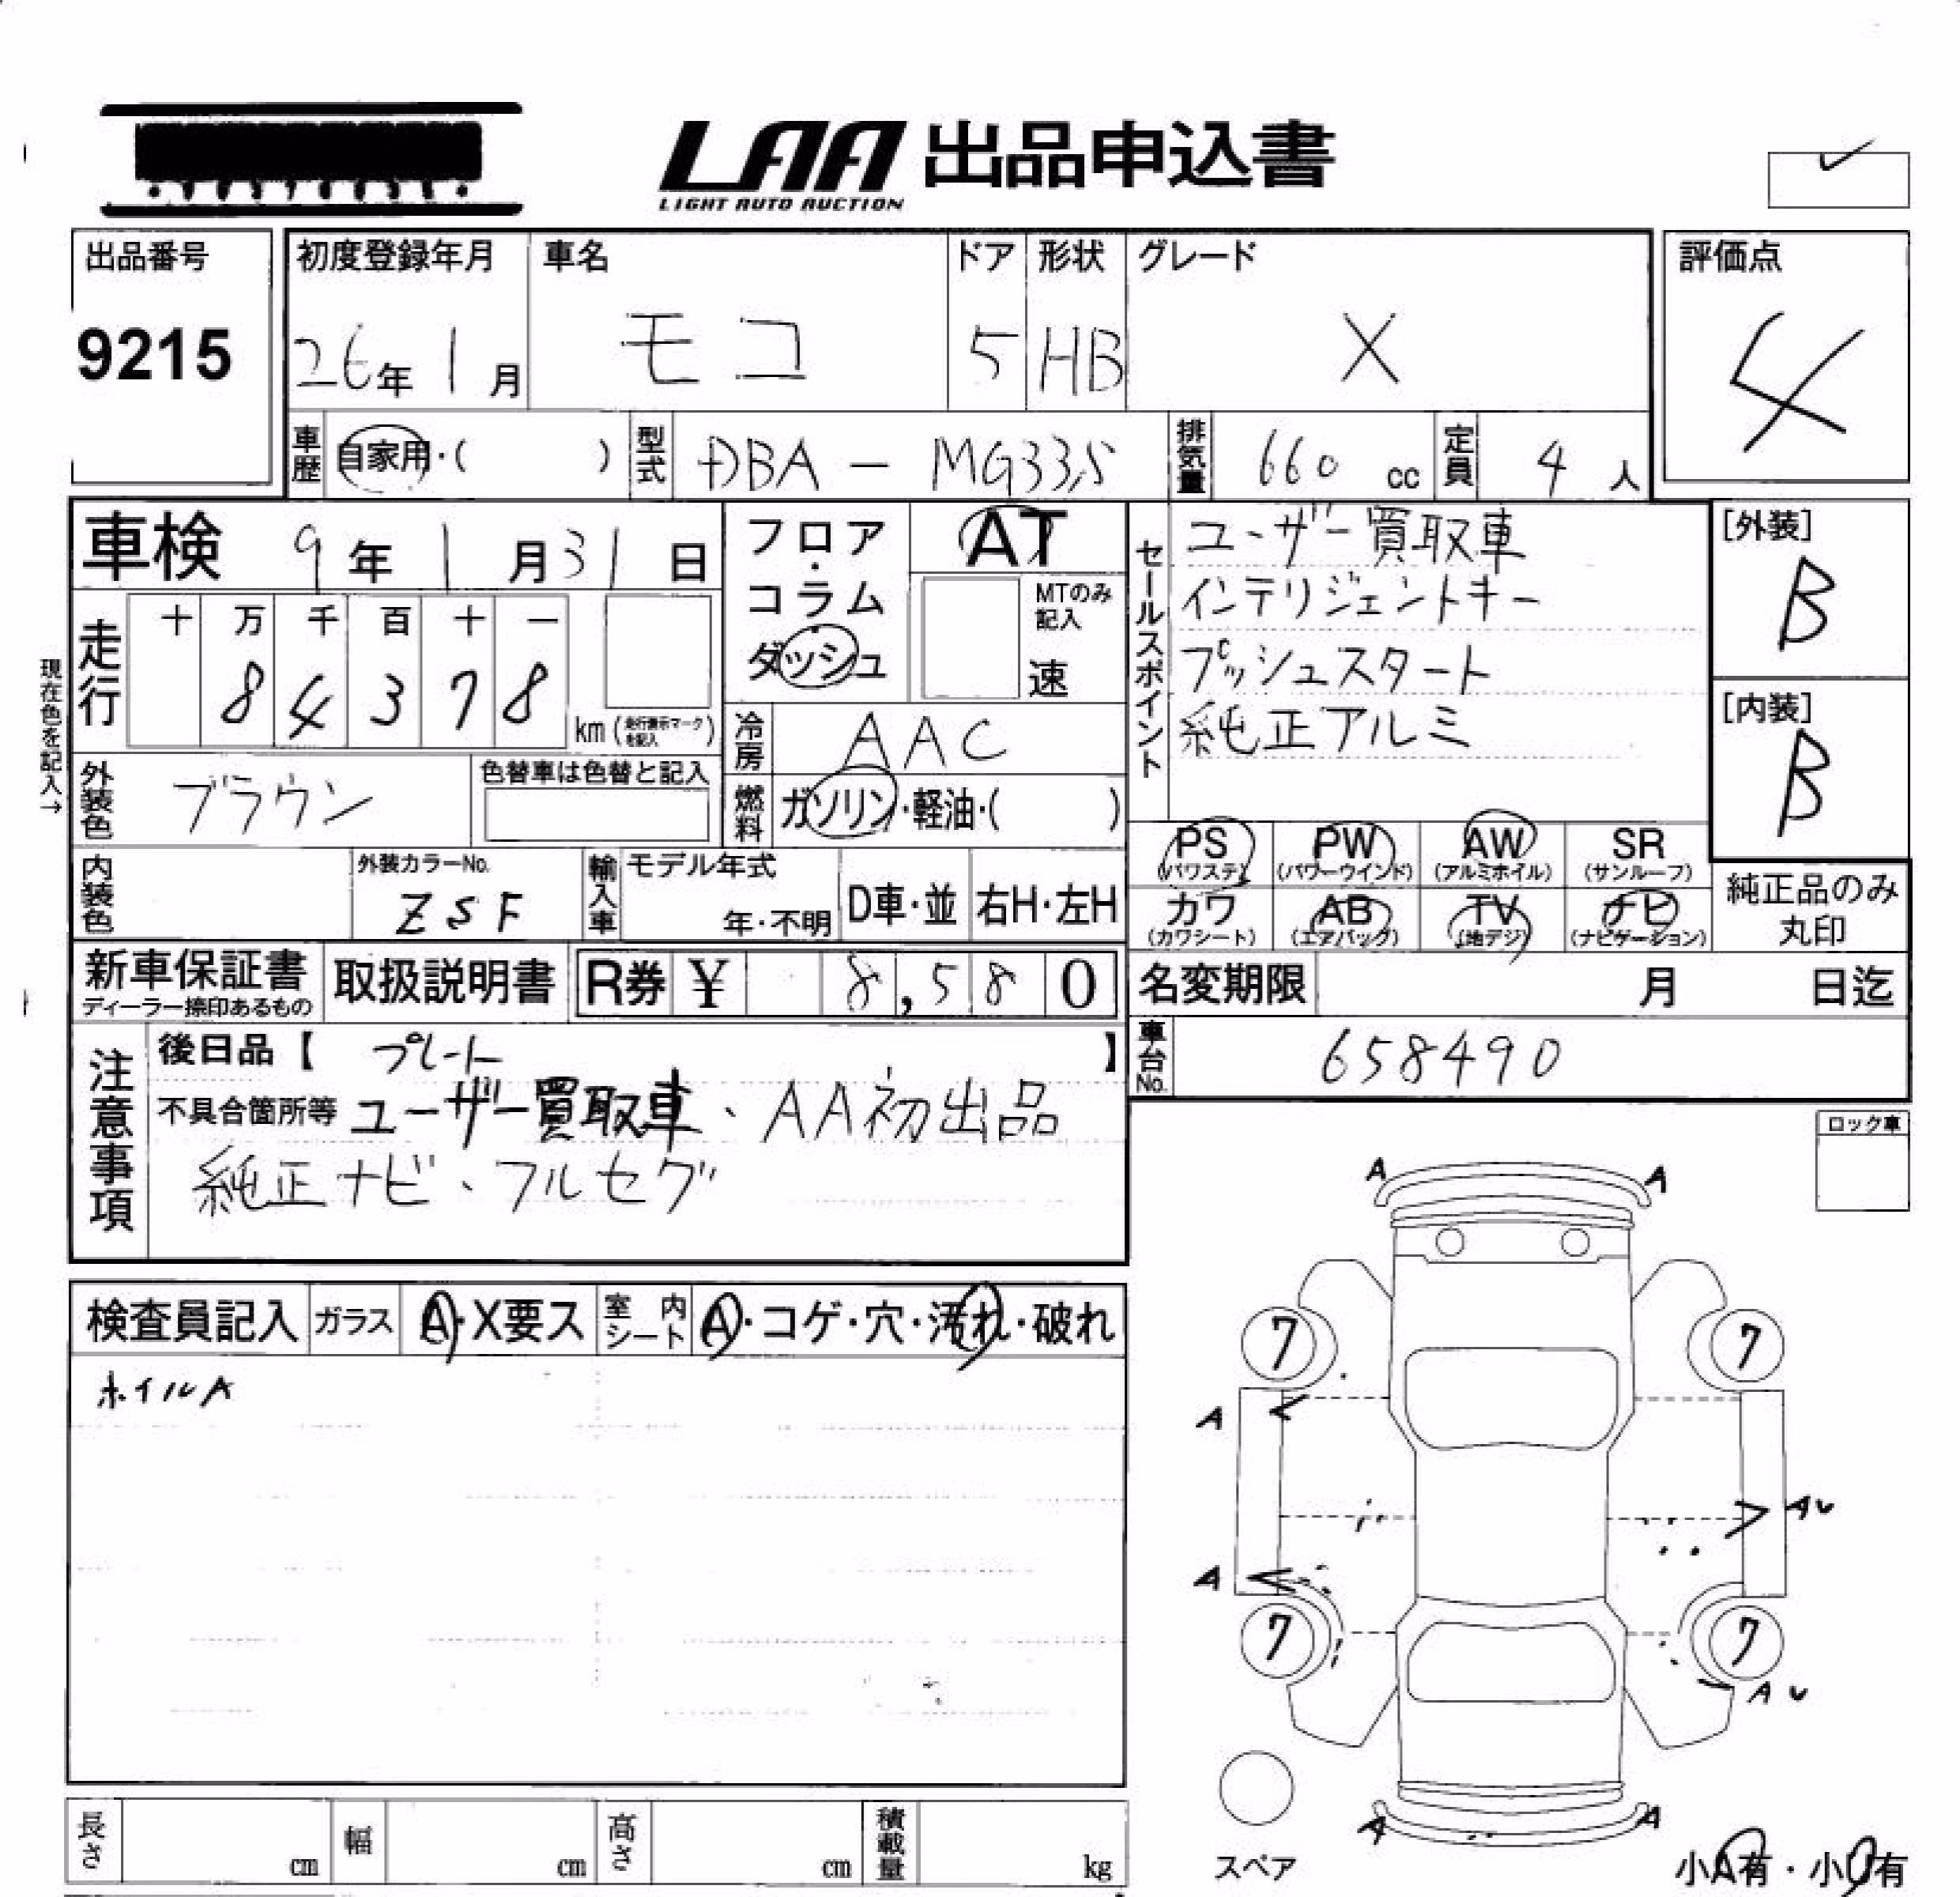 LAA 出品申込書
LIGHT AUTO AUCTION
出品番号
9215
初度登録年月 車名 ドア 形状 グレード
26年 1月 モコ 5 HB X
評価点
4
車歴 自家用・( ) 型式 DBA - MG33S 排気量 660 cc 定員 4 人
車検 9年 1月 31日
フロア・コラム ダッシュ
AT
MTのみ記入
速
セールスポイント
ユーザー買取車
インテリジェントキー
プッシュスタート
純正アルミ
[外装]
B
[内装]
B
現在色を記入→
走行 十 万 千 百 十 一
8 4 3 7 8 km (走行表示マークを記入)
冷房 AAC
燃料 ガソリン・軽油・( )
外装色 ブラウン 色替車は色替と記入
PS PW AW SR
(パワステ) (パワーウインド) (アルミホイル) (サンルーフ)
カワ AB TV ナビ
(カワシート) (エアバック) (地デジ) (ナビゲーション)
純正品のみ
丸印
内装色 外装カラーNo. ZSF 輸入車 モデル年式 年・不明 D車・並 右H・左H
新車保証書 取扱説明書 R券 ¥ 8,580
ディーラー捺印あるもの
名変期限 月 日迄
車台No. 658490
注意事項
後日品【 プレート 】
不具合箇所等 ユーザー買取車、AA初出品
純正ナビ、フルセグ
ロック車
検査員記入 ガラス A・X要ス 室内シート A・コゲ・穴・汚れ・破れ
ホイルA
A A
7 7
A
AU
A
7 7
AU
A A
スペア
小A有・小U有
長さ cm 幅 cm 高さ cm 積載量 kg